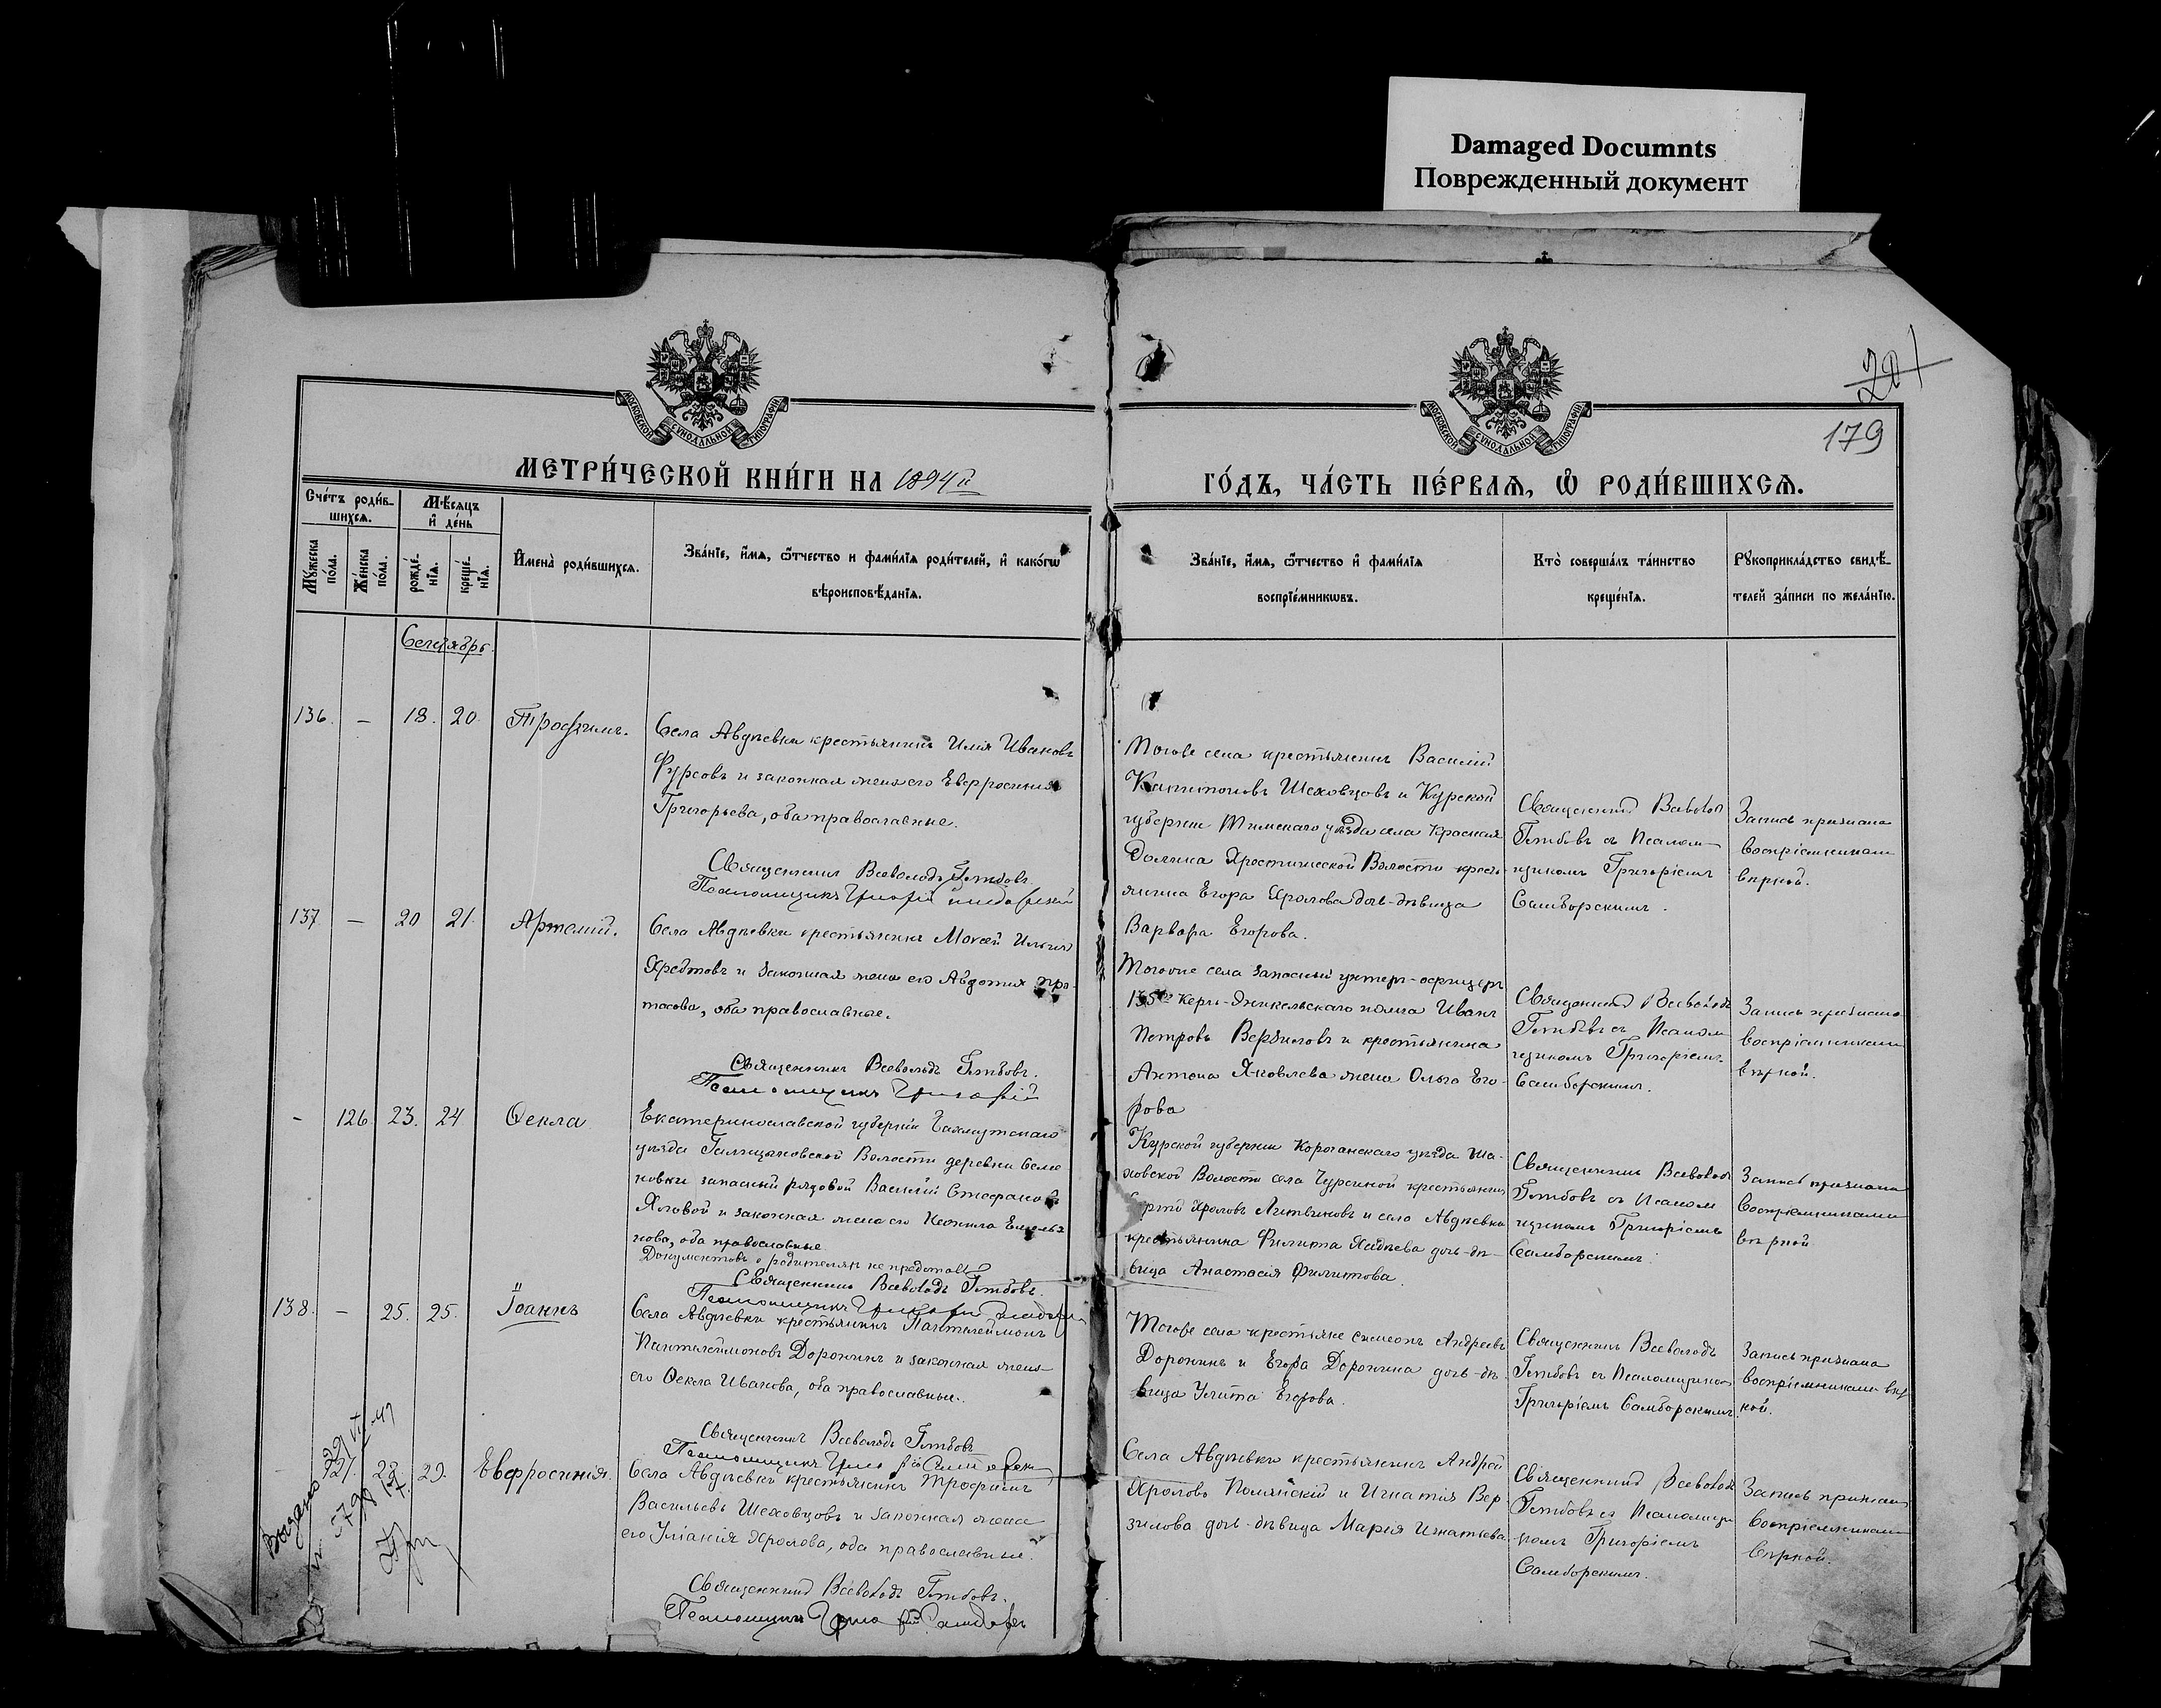 Damaged Documnts
Поврежденный документ
201
179
МОСКОВСКОЙ СѴНОДАЛЬНОЙ ТИПОГРАФІИ
МОСКОВСКОЙ СѴНОДАЛЬНОЙ ТИПОГРАФІИ
МЕТРИ́ЧЕСКОЙ КНИ́ГИ НА 1894й
ГО́ДЪ, ЧА́СТЬ ПЕ́РВАѦ, Ѡ҆ РОДИ́ВШИХСѦ.
Сче́тъ роди́в-
шихсѧ.
Мѣ́сѧцъ
и҆ де́нь
Мꙋ́жеска
по́ла.
Же́нска
по́ла.
рожде́-
нїѧ.
креще́-
нїѧ.
И҆мена̀ роди́вшихсѧ.
Зва́нїе, и҆́мѧ, ѻ҆́тчество и фами́лїѧ роди́телей, и҆ како́гѡ
вѣроисповѣ́данїѧ.
Зва́нїе, и҆́мѧ, ѻ҆́тчество и҆ фами́лїѧ
воспрїе́мникѡвъ.
Кто̀ соверша́лъ та́инство
креще́нїѧ.
Рꙋкоприкла́дство свидѣ́-
телей за́писи по жела́нїю.
Сентябрь.
136. — 18. 20. Трофимъ.
Села Авдѣевки крестьянинъ Илія Ивановъ
Фурсовъ и законная жена его Евфросинія
Григорьева, оба православные.
Священникъ Всеволодъ Гетбовъ.
Псаломщикъ Григорій
Тогоже села крестьянинъ Василій
Капитоновъ Шеховцовъ и Курской
губерніи Тимскаго уѣзда села Красная
Долина Волости кресть-
янина Егора Хролова дочь-дѣвица
Варвара Егорова.
Священникъ Всеволод
Гетбовъ съ Псалом-
щикомъ Григоріемъ
Самборскимъ.
Запись признана
воспріемниками
вѣрной.
137 — 20 21. Артемій.
Села Авдѣевки крестьянинъ Моисей Ильинъ
и законная жена его Авдотия Про-
тасова, оба православные.
Священникъ Всеволодъ Гетбовъ.
Псаломщикъ Григорій
Тогоже села запасный унтеръ-офицеръ
135го Керчь-Эникельскаго полка Иванъ
Петровъ Верзиловъ и крестьянина
Антона Яковлева жена Ольга Его-
рова
Священникъ Всеволодъ
Гетбовъ съ Псалом
щикомъ Григоріемъ
Самборскимъ.
Запись признана
воспріемниками
вѣрной.
- 126 23. 24 Ѳекла
Екатеринославской губерніи Бахмутскаго
уѣзда Галицыновской Волости деревни Семе
новки запасный рядовой Василій Стефановъ
Яловой и законная жена его Емелья
нова, оба православные
Документовъ о родителях не представ
Священникъ Всеволодъ Гетбовъ.
Псаломщикъ Григорій
Курской губерніи Корочанскаго уѣзда Ша-
ховской Волости села крестьянин
Хроловъ Литвиновъ и села Авдѣевки
крестьянина Филипа дочь-дѣ-
вица Анастасія Филипова.
Священникъ Всеволод
Гетбовъ съ Псалом
щикомъ Григоріемъ
Самборскимъ.
Запись признана
воспріемниками
вѣрной
138. — 25. 25. Іоаннъ
Села Авдѣевки крестьянинъ Пантелеймонъ
Пантелеймоновъ Доронинъ и законная жена
его Ѳекла Иванова, оба православные.
Священникъ Всеволодъ Гетбовъ
Псаломщикъ
Тогоже села крестьяне Симеонъ Андреевъ
Доронинъ и Егора Доронина дочь-дѣ-
вица Улита Егорова.
Священникъ Всеволодъ
Гетбовъ съ Псаломщикомъ
Григоріемъ Самборскимъ.
Запись признана
воспріемниками вѣр
ной.
127. 28 29. Евфросинія.
Выдано
Села Авдѣевки крестьянинъ Трофимъ
Васильевъ Шеховцовъ и законная жена
его Уліанія Хролова, оба православные.
Священникъ Всеволодъ Гетбовъ.
Псаломщикъ
Села Авдѣевки крестьянинъ Андрей
Хроловъ и Игнатія Вер-
зилова дочь-дѣвица Марія Игнатьева.
Священникъ Всеволодъ
Гетбовъ съ Псаломщи
комъ Григоріемъ
Самборскимъ.
Запись признана
воспріемниками
вѣрной.